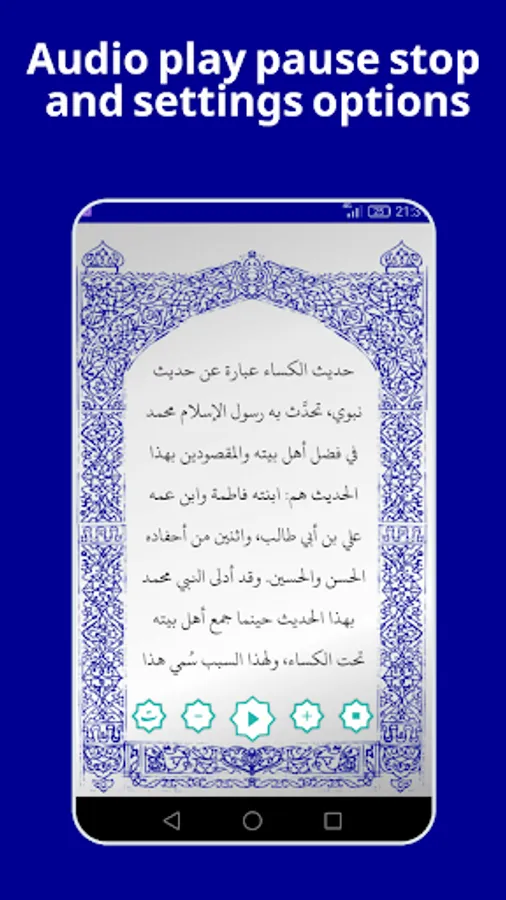 Audio play pause stop
and settings options
21:3
حديث الكساء عبارة عن حديث
نبوي، تحدَّث به رسول الإسلام محمد
في فضل أهل بيته والمقصودين بهذا
الحديث هم: ابنته فاطمة وابن عمه
علي بن أبي طالب، واثنين من أحفاده
الحسن والحسين. وقد أدلى النبي محمد
بهذا الحديث حينما جمع أهل بيته
تحت الكساء، ولهذا السبب سُمي هذا